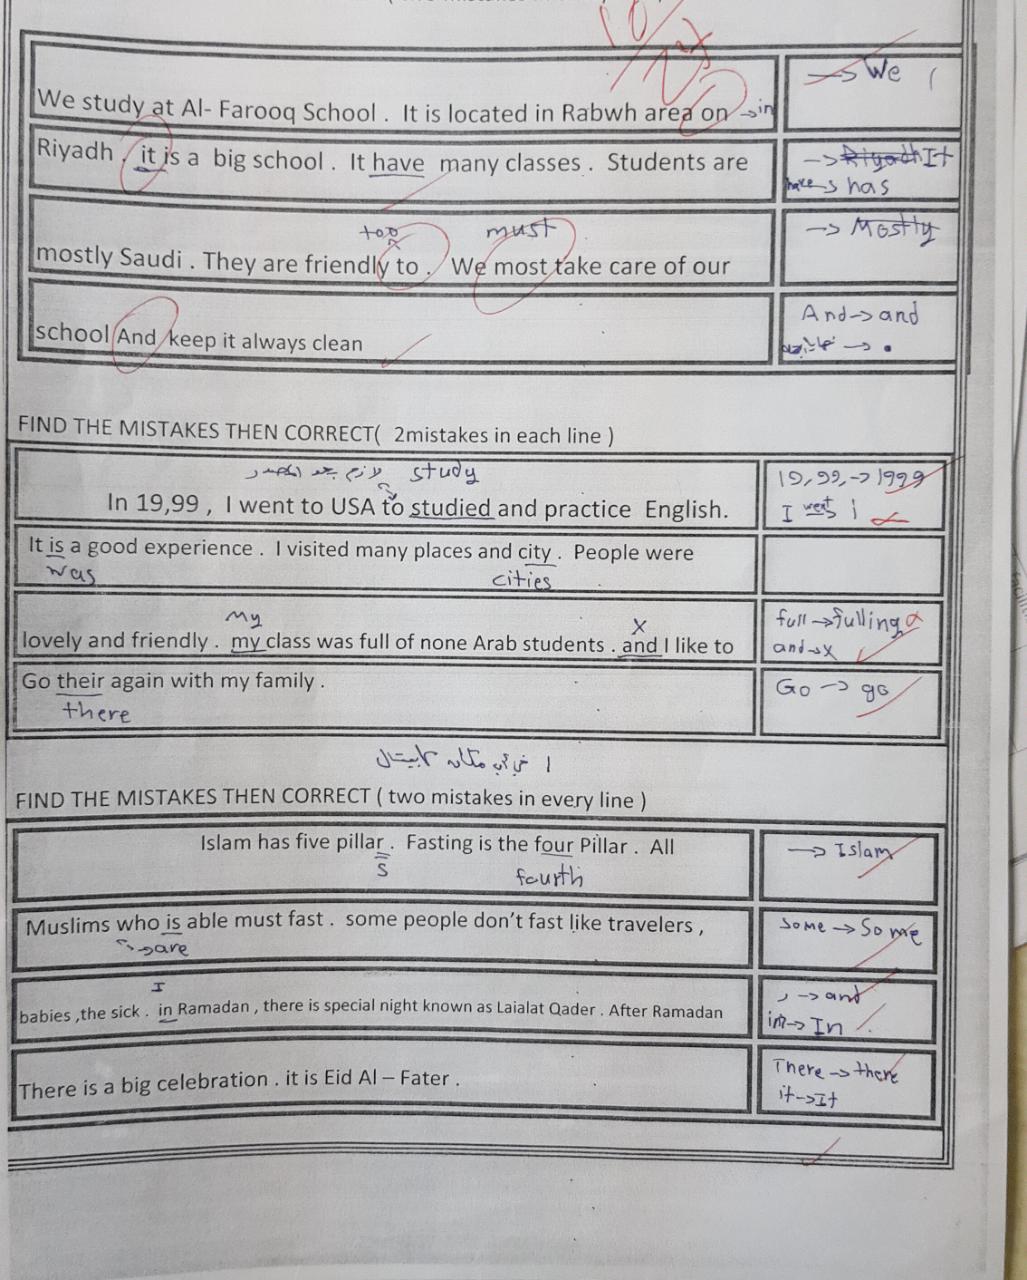 10/25
We study at Al- Farooq School . It is located in Rabwh area on → in
→ We
Riyadh . it is a big school . It have many classes . Students are
→ Riyadh It
have → has
too must
mostly Saudi . They are friendly to . We most take care of our
→ Mostly
school And keep it always clean
And → and
→ .
FIND THE MISTAKES THEN CORRECT( 2mistakes in each line )
study
In 19,99 , I went to USA to studied and practice English.
19,99, → 1999
I went
It is a good experience . I visited many places and city . People were
was cities
My X
lovely and friendly . my class was full of none Arab students . and I like to
full → fulling
and → X
Go their again with my family .
there
Go → go
FIND THE MISTAKES THEN CORRECT ( two mistakes in every line )
Islam has five pillar . Fasting is the four Pillar . All
s fourth
→ Islam
Muslims who is able must fast . some people don't fast like travelers ,
→ are
some → Some
I
babies ,the sick . in Ramadan , there is special night known as Laialat Qader . After Ramadan
, → and
in → In
There is a big celebration . it is Eid Al – Fater .
There → there
it → It